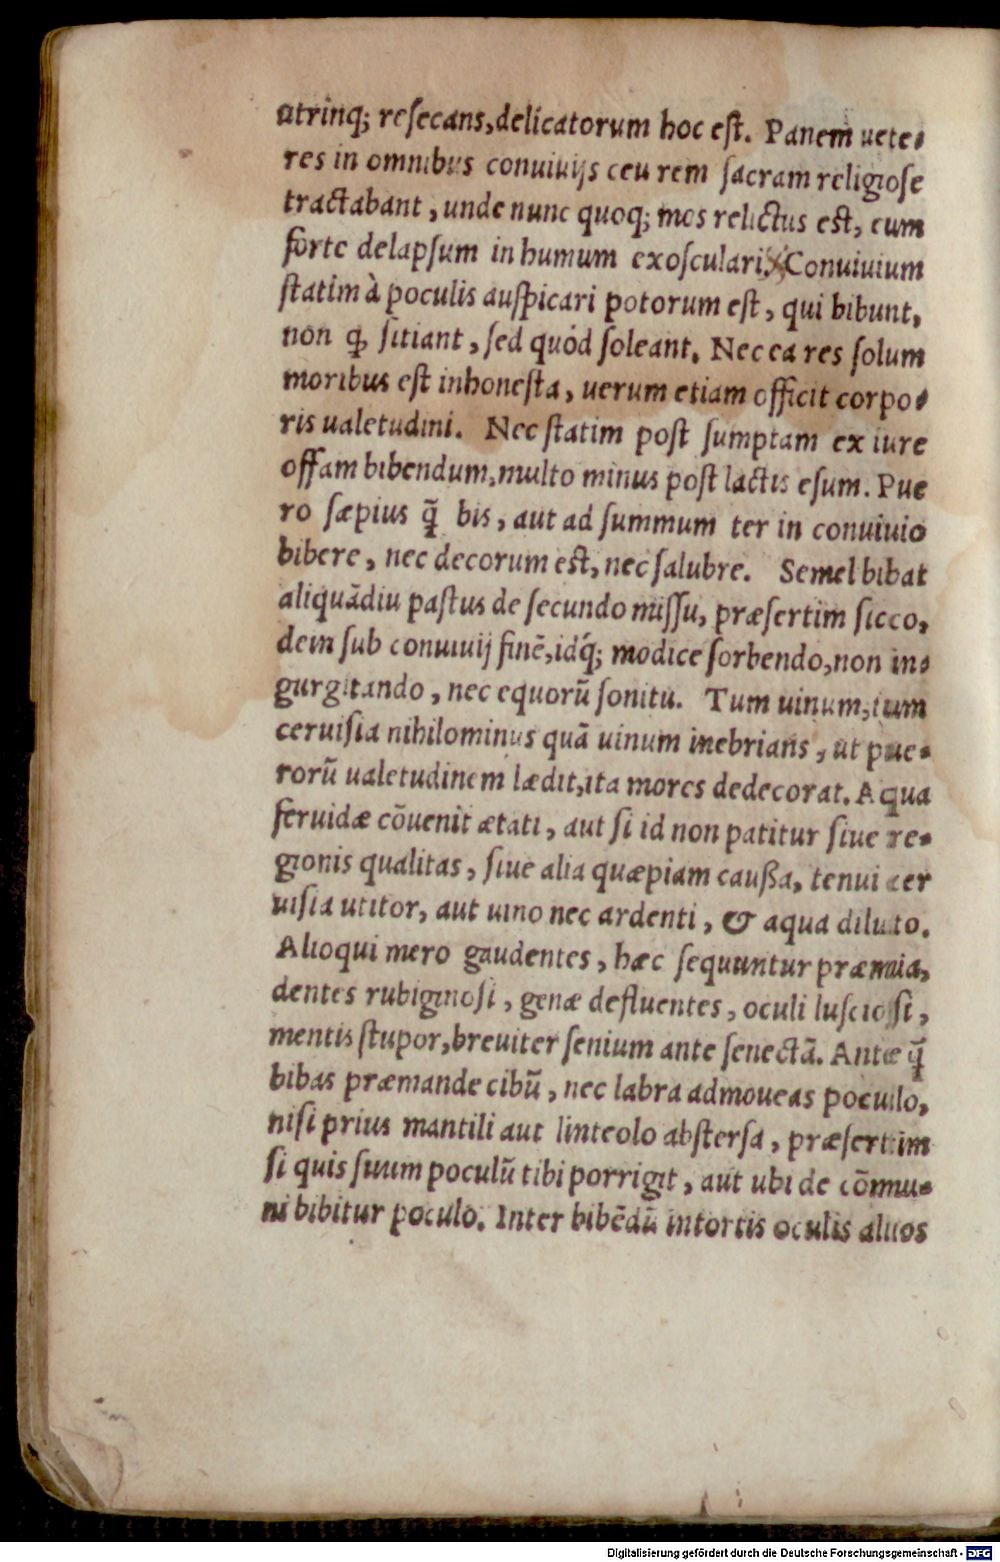 utrinq; resecans, delicatorum hoc est. Panem uete-
res in omnibus conuiuijs ceu rem sacram religiose
tractabant, unde nunc quoq; mos relictus est, eum
forte delapsum in humum exosculari. Conuiuium
statim à poculis auspicari potorum est, qui bibunt,
non ꝙ sitiant, sed quòd soleant. Nec ea res solum
moribus est inhonesta, uerum etiam officit corpo-
ris ualetudini. Nec statim post sumptam ex iure
offam bibendum, multo minus post lactis esum. Pue
ro sæpius q̃ bis, aut ad summum ter in conuiuio
bibere, nec decorum est, nec salubre. Semel bibat
aliquãdiu pastus de secundo missu, præsertim sicco,
dein sub conuiuij finẽ, idq́; modice sorbendo, non in-
gurgitando, nec equorũ sonitu. Tum uinum, tum
ceruisia nihilominus quã uinum inebrians, ut pue-
rorũ ualetudinem lædit, ita mores dedecorat. Aqua
feruidæ cõuenit ætati, aut si id non patitur siue re-
gionis qualitas, siue alia quæpiam caußa, tenui cer
uisia utitor, aut uino nec ardenti, & aqua diluto.
Alioqui mero gaudentes, hæc sequuntur præmia,
dentes rubiginosi, genæ defluentes, oculi lusciosi,
mentis stupor, breuiter senium ante senectã. Antæ q̃
bibas præmande cibũ, nec labra admoueas poculo,
nisi prius mantili aut linteolo abstersa, præsertim
si quis suum poculũ tibi porrigit, aut ubi de cõmu-
ni bibitur poculo. Inter bibẽdũ intortis oculis alios
Digitalisierung gefördert durch die Deutsche Forschungsgemeinschaft - DFG